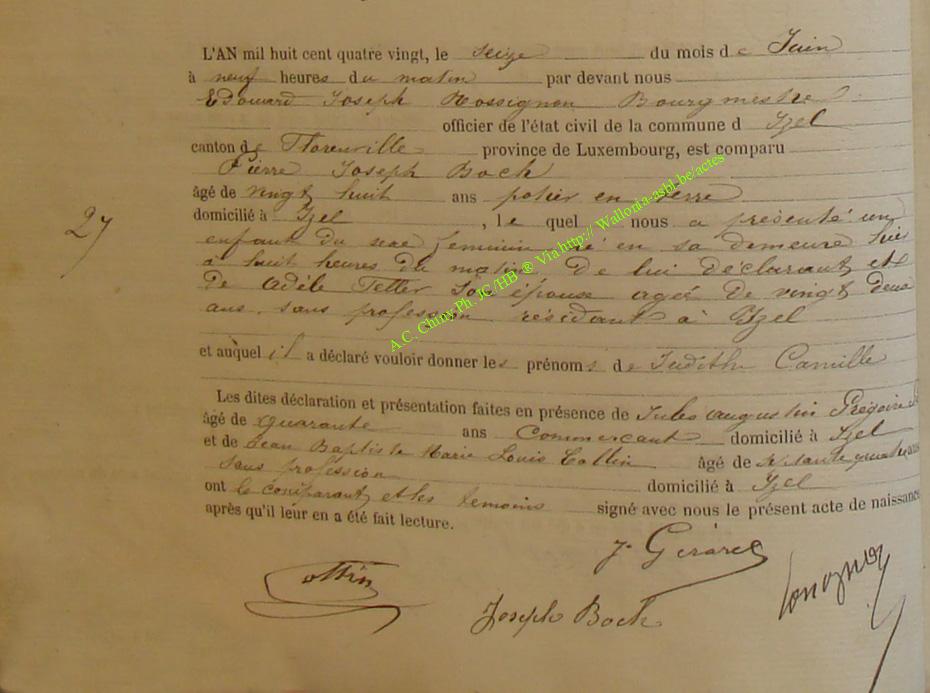 L'AN mil huit cent quatre vingt, le seize du mois de Juin
à neuf heures du matin par devant nous
Edouard Joseph Rossignon Bourgmestre
officier de l'état civil de la commune d Izel
canton de Florenville province de Luxembourg, est comparu
Pierre Joseph Bock
âgé de vingt huit ans potier en terre
domicilié à Izel, lequel nous a présenté un
27
enfant du sexe féminin né en sa demeure hier
à huit heures du matin de lui déclarant et
de Adèle Tetter son épouse agée de vingt deux
ans, sans profession résidant à Izel
et auquel il a déclaré vouloir donner les prénoms de Judith Camille
Les dites déclaration et présentation faites en présence de Jules Augustin
âgé de quarante ans Commerçant domicilié à Izel
et de Jean Baptiste Marie Louis Collin âgé de septante quatre ans
sans profession domicilié à Izel
ont le comparant et les temoins signé avec nous le présent acte de naissance
après qu'il leur en a été fait lecture.
J. Gérard
Collin
Joseph Bock
A.C. Chiny Ph. JC /HB ® Via http:// Wallonia-asbl.be/actes